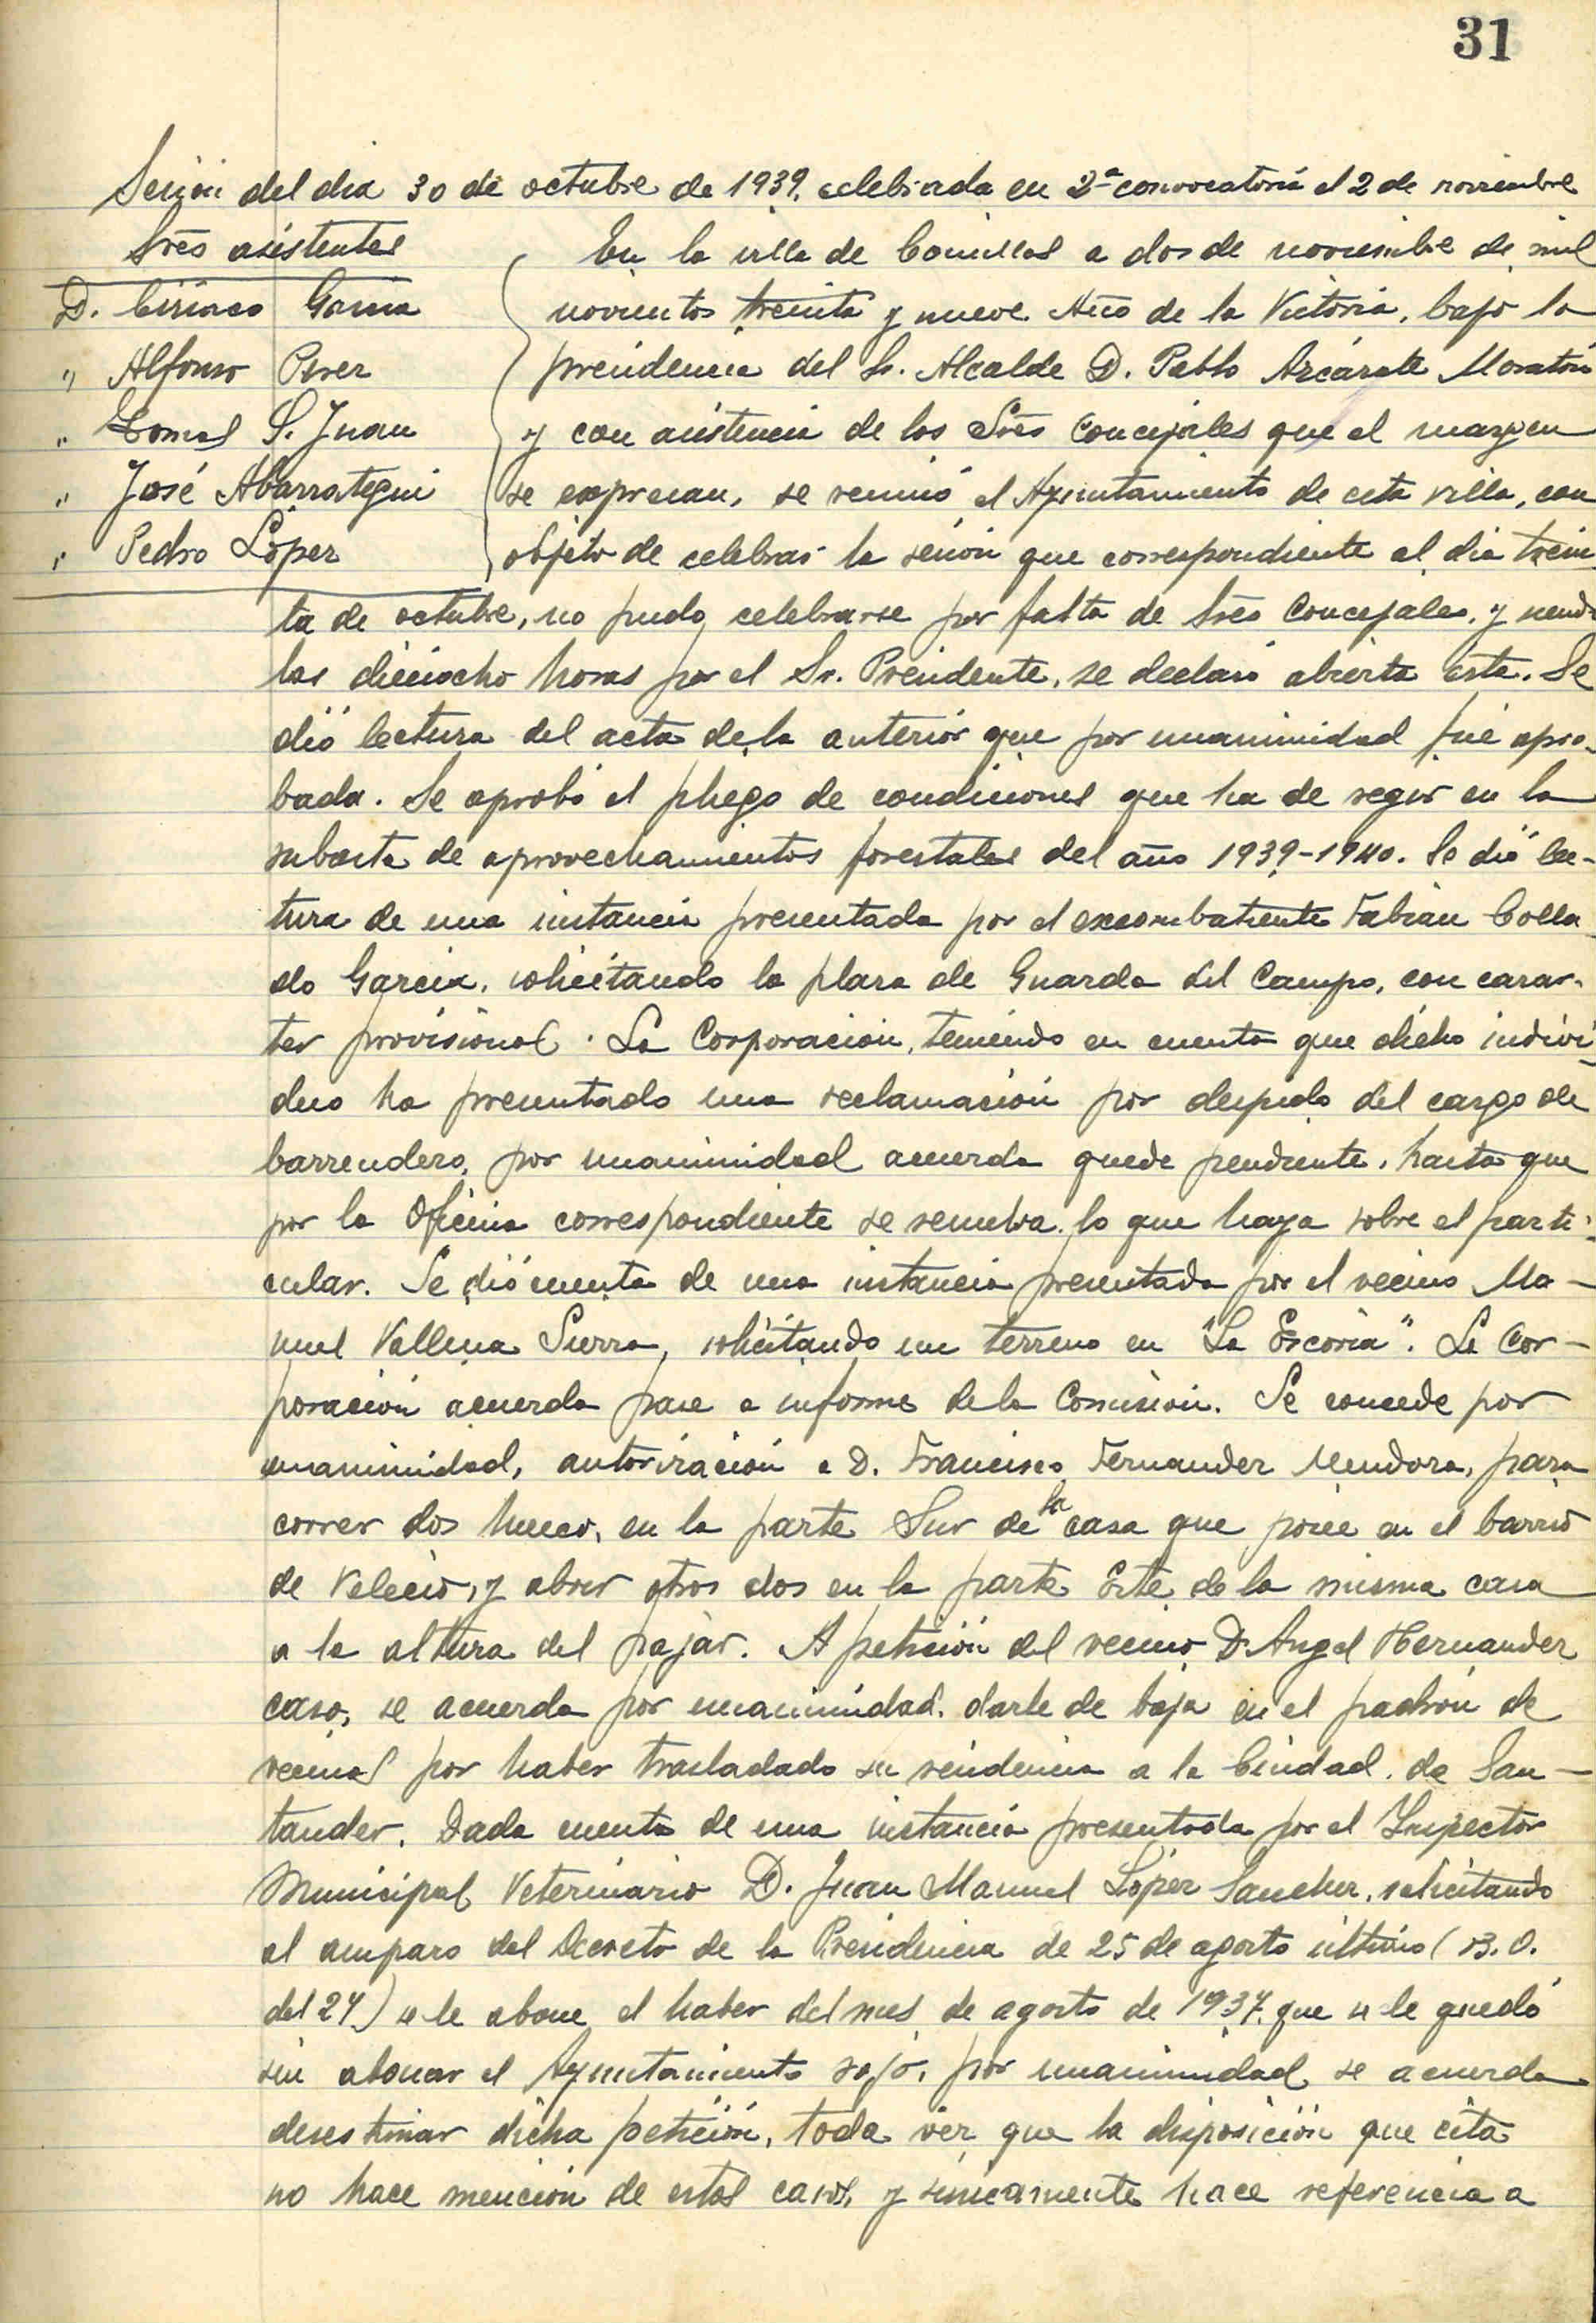 31
Sesión del dia 30 de octubre de 1939, celebrada en 2ª convocatoria el 2 de noviembre
Sres asistentes
D. Ciriaco García
" Alfonso Perez
" Tomas S. Juan
" José Abarrategui
" Pedro López
En la villa de Comillas a dos de noviembre de mil
novientos treinta y nueve Año de la Victoria, bajo la
presidencia del Sr. Alcalde D. Pablo Azcárate Moratón
y con asistencia de los Sres Concejales que al margen
se expresan, se reunió el Ayuntamiento de esta villa, con
objeto de celebrar la sesión que correspondiente al dia trein-
ta de octubre, no pudo celebrarse por falta de Sres Concejales, y siendo
las dieciocho horas por el Sr. Presidente, se declaró abierta esta. Se
dió lectura del acta de la anterior que por unanimidad fué apro-
bada. Se aprobó el pliego de condiciones que ha de regir en la
subasta de aprovechamientos forestales del año 1939-1940. Se dió lec-
tura de una instancia presentada por el excombatiente Fabian Colla-
do Garcia, solicitando la plaza de Guarda del Campo, con carac-
ter provisional. La Corporación, teniendo en cuenta que dicho indivi-
duo ha presentado una reclamación por despido del cargo de
barrendero, por unanimidad acuerda quede pendiente, hasta que
por la Oficina correspondiente se resuelva lo que haya sobre el parti-
cular. Se dió cuenta de una instancia presentada por el vecino Ma-
nuel Vallina Sierra, solicitando un terreno en "La Escoria". La Cor-
poración acuerda pase a informe de la Comisión. Se concede por
unanimidad, autorización a D. Francisco Fernandez Mendoza, para
correr dos huecos, en la parte Sur de la casa que posee en el barrio
de Velecio, y abrir otros dos en la parte Este de la misma casa
a la altura del pajar. A petición del vecino D. Angel Hernandez
caso, se acuerda por unanimidad, darle de baja en el padrón de
vecinos por haber trasladado su residencia a la Ciudad de San-
tander. Dada cuenta de una instancia presentada por el Inspector
Municipal Veterinario D. Juan Manuel López Sanchez, solicitando
al amparo del Decreto de la Presidencia de 25 de agosto último (B.O.
del 27) se le abone el haber del mes de agosto de 1937, que se le quedó
sin abonar el Ayuntamiento rojo, por unanimidad se acuerda
desestimar dicha petición, toda vez que la disposición que cita
no hace mención de estos casos, y únicamente hace referencia a